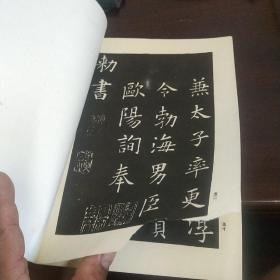 兼太子率更
令勃海男臣
歐陽詢奉
勅書